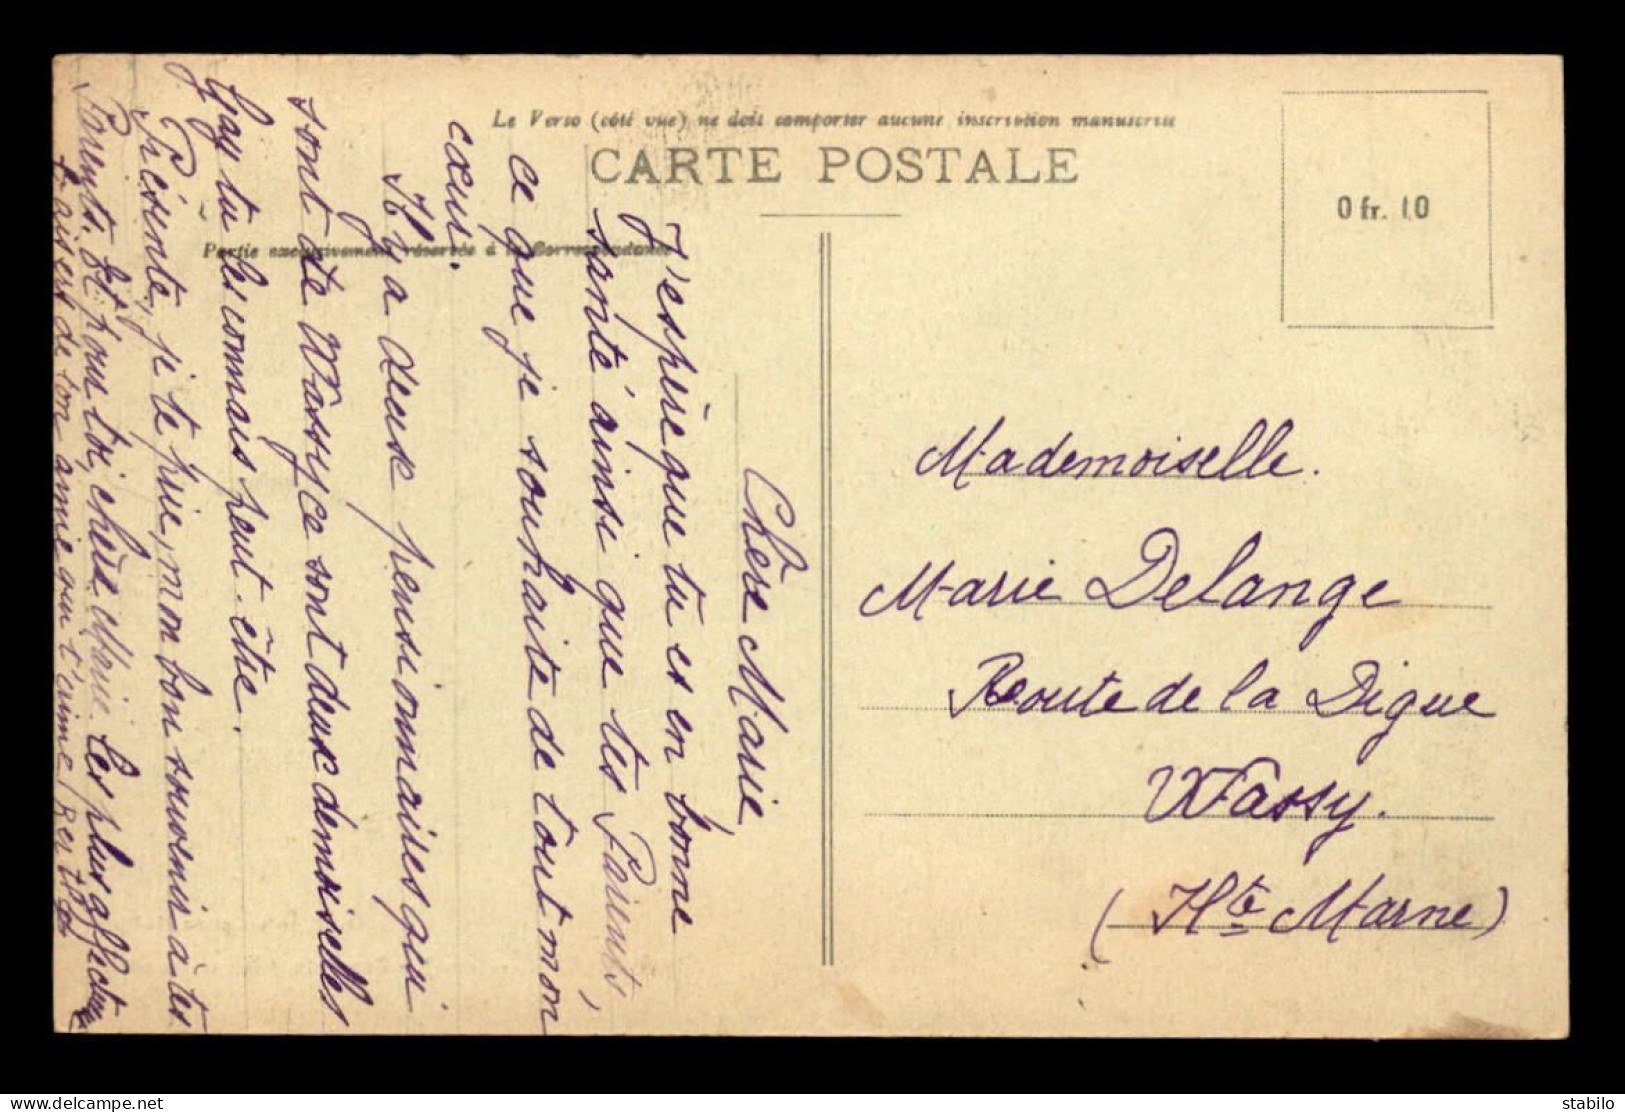 Le Verso (côté vue) ne doit comporter aucune inscription manuscrite
CARTE POSTALE
0 fr. 10
Partie exclusivement réservée à la Correspondance
Chère Marie,
J'espère que tu es en bonne
santé ainsi que tes Parents,
ce que je souhaite de tout mon
cœur.
Il y a deux pensionnaires qui
sont de Wassy ce sont deux demoiselles
Gay tu les connais peut-être.
Présente, je te prie, mon bon souvenir à tes
Parents. Et pour toi, chère Marie les plus affectueux
baisers de ton amie qui t'aime,
Mademoiselle.
Marie Delange
Route de la Digue
Wassy.
(Hte Marne)
stabilo